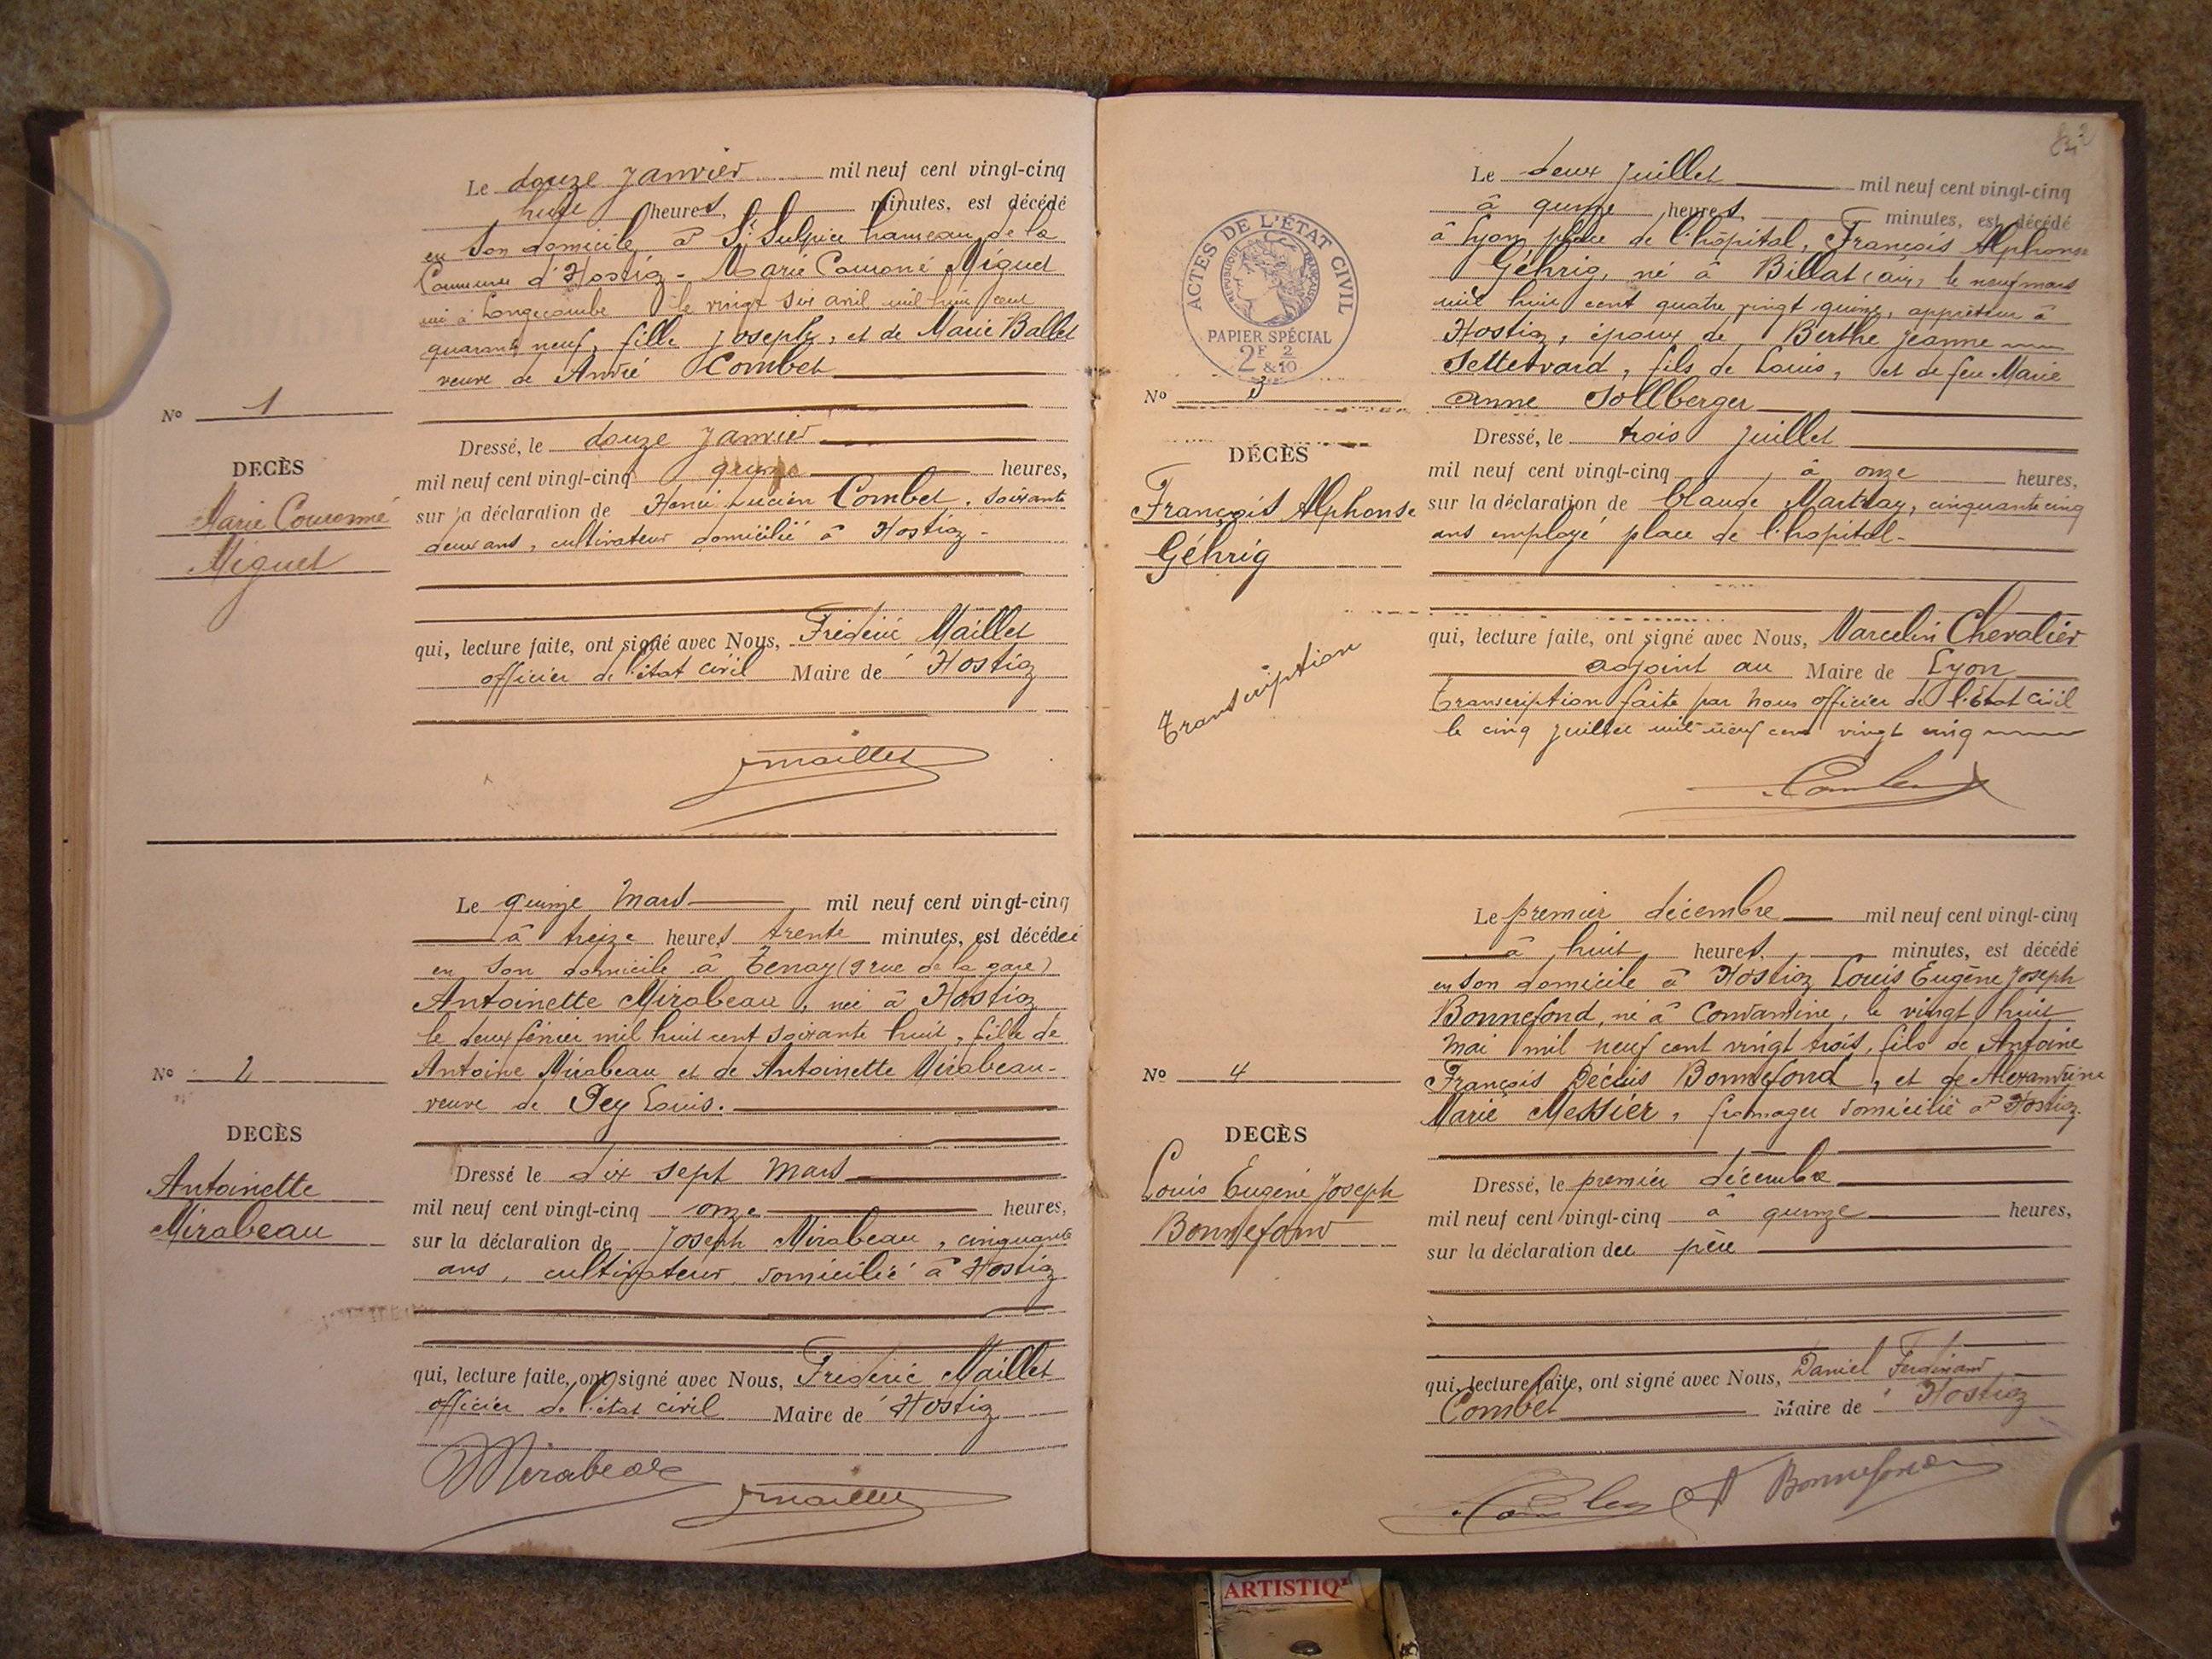 Le douze Janvier mil neuf cent vingt-cinq
huit heures, minutes, est décédé
en son domicile à St Sulpice hameau de la
Commune d'Hostiaz - Marie Couronné Miguet
née à Longecombe le vingt six avril mil huit cent
quarante neuf, fille Joseph, et de Marie Ballet
veuve de André Combet
No 1
DECÈS
Marie Couronné
Miguet
Dressé, le douze Janvier
mil neuf cent vingt-cinq quinze heures,
sur la déclaration de Henri Lucien Combet, soixante
deux ans, cultivateur domicilié à Hostiaz -
qui, lecture faite, ont signé avec Nous, Frédéric Maillet
officier de l'état civil Maire de Hostiaz
Jmaillet
Le quinze Mars mil neuf cent vingt-cinq
à treize heures trente minutes, est décédée
en son domicile à Tenay (9 rue de la gare)
Antoinette Mirabeau, née à Hostiaz
le deux février mil huit cent soixante huit, fille de
Antoine Mirabeau et de Antoinette Mirabeau -
veuve de Pey Louis.
No 2
DECÈS
Antoinette
Mirabeau
Dressé le dix sept Mars
mil neuf cent vingt-cinq onze heures,
sur la déclaration de Joseph Mirabeau, cinquante
ans, cultivateur domicilié à Hostiaz
qui, lecture faite, ont signé avec Nous, Frédéric Maillet
officier de l'état civil Maire de Hostiaz
Mirabeau Jmaillet
ACTES DE L'ÉTAT CIVIL
REPUBLIQUE FRANÇAISE
PAPIER SPÉCIAL
2F 2
& 10
Le deux juillet mil neuf cent vingt-cinq
à quinze heures minutes, est décédé
à Lyon place de l'hôpital, François Alphonse
Géhrig, né à Billiat (ain) le neuf mars
mil huit cent quatre vingt quinze, apprêteur à
Hostiaz, époux de Berthe Jeanne
fils de Louis, et de feu Marie
Anne Sollberger
No 3
DÉCÈS
François Alphonse
Géhrig
Transcription
Dressé, le trois juillet
mil neuf cent vingt-cinq à onze heures,
sur la déclaration de Claude cinquante cinq
ans employé place de l'hopital -
qui, lecture faite, ont signé avec Nous, Marcelin Chevalier
adjoint au Maire de Lyon
Transcription faite par nous officier de l'Etat civil
le cinq juillet mil neuf cent vingt cinq
Combet
Le premier décembre mil neuf cent vingt-cinq
à huit heures, minutes, est décédé
en son domicile à Hostiaz Louis Eugène Joseph
Bonnefond, né à Condamine, le vingt huit
Mai mil neuf cent vingt trois, fils de Antoine
François Décius Bonnefond, et de Alexandrine
Marie Messier, fromager domicilié à Hostiaz.
No 4
DECÈS
Louis Eugène Joseph
Bonnefond
Dressé, le premier décembre
mil neuf cent vingt-cinq à quinze heures,
sur la déclaration du père
qui, lecture faite, ont signé avec Nous, Daniel Ferdinand
Combet Maire de Hostiaz
Combet A Bonnefond
ARTISTIQ